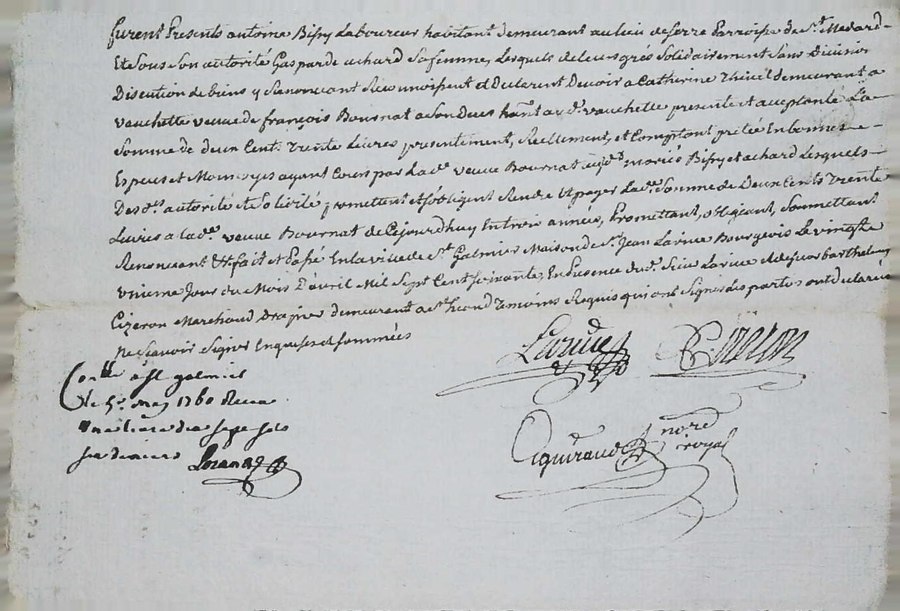 furent Presents antoine Bissy Laboureur habitant demeurant au lieu de serre Parroisse de St. Medard
Et sous son autorité Gasparde achard sa femme, Lesquels de leurs grés solidairement sans Division
Discution de biens y Renoncant Reconnoissent et Declarent Devoir a Catherine demeurant a
vauchette veuve de françois Bournat a son Deces hant a yd. vauchette presente et acceptante La
somme de deux Cent trente Livres presentement, Reellement, et Comptant pretée En bonnes
Especes et Monoyes ayant Cours par Lade. veuve Bournat auxds. mariés Bissy et achard Lesquels
Des ds. autorité et solidité promettent et s'obligent Rendre et payer Lade. Somme de Deux Cents trente
Livres a lade. veuve Bournat de Cejourdhuy En trois années, Promettant, obligeant, soumettant
Renoncant &a fait et Passé En la ville de St. Galmier Maison de sr. Jean Larive Bourgeois Le vingt
unieme Jour du Mois D'avril Mil Sept Cent soixante En Presence dud. sieur Larive et de sieur barthelemy
Cizeron Marchand Drapier demeurant a St. heand temoins Requis qui ont signés les parties ont déclaré ne
sçavoir signer Enquises et sommées
Larive Cizeron
Conllé a St galmier
le 5e. may 1760 Recu
une livre dix sept sols
six deniers
Aguiraud nore royal